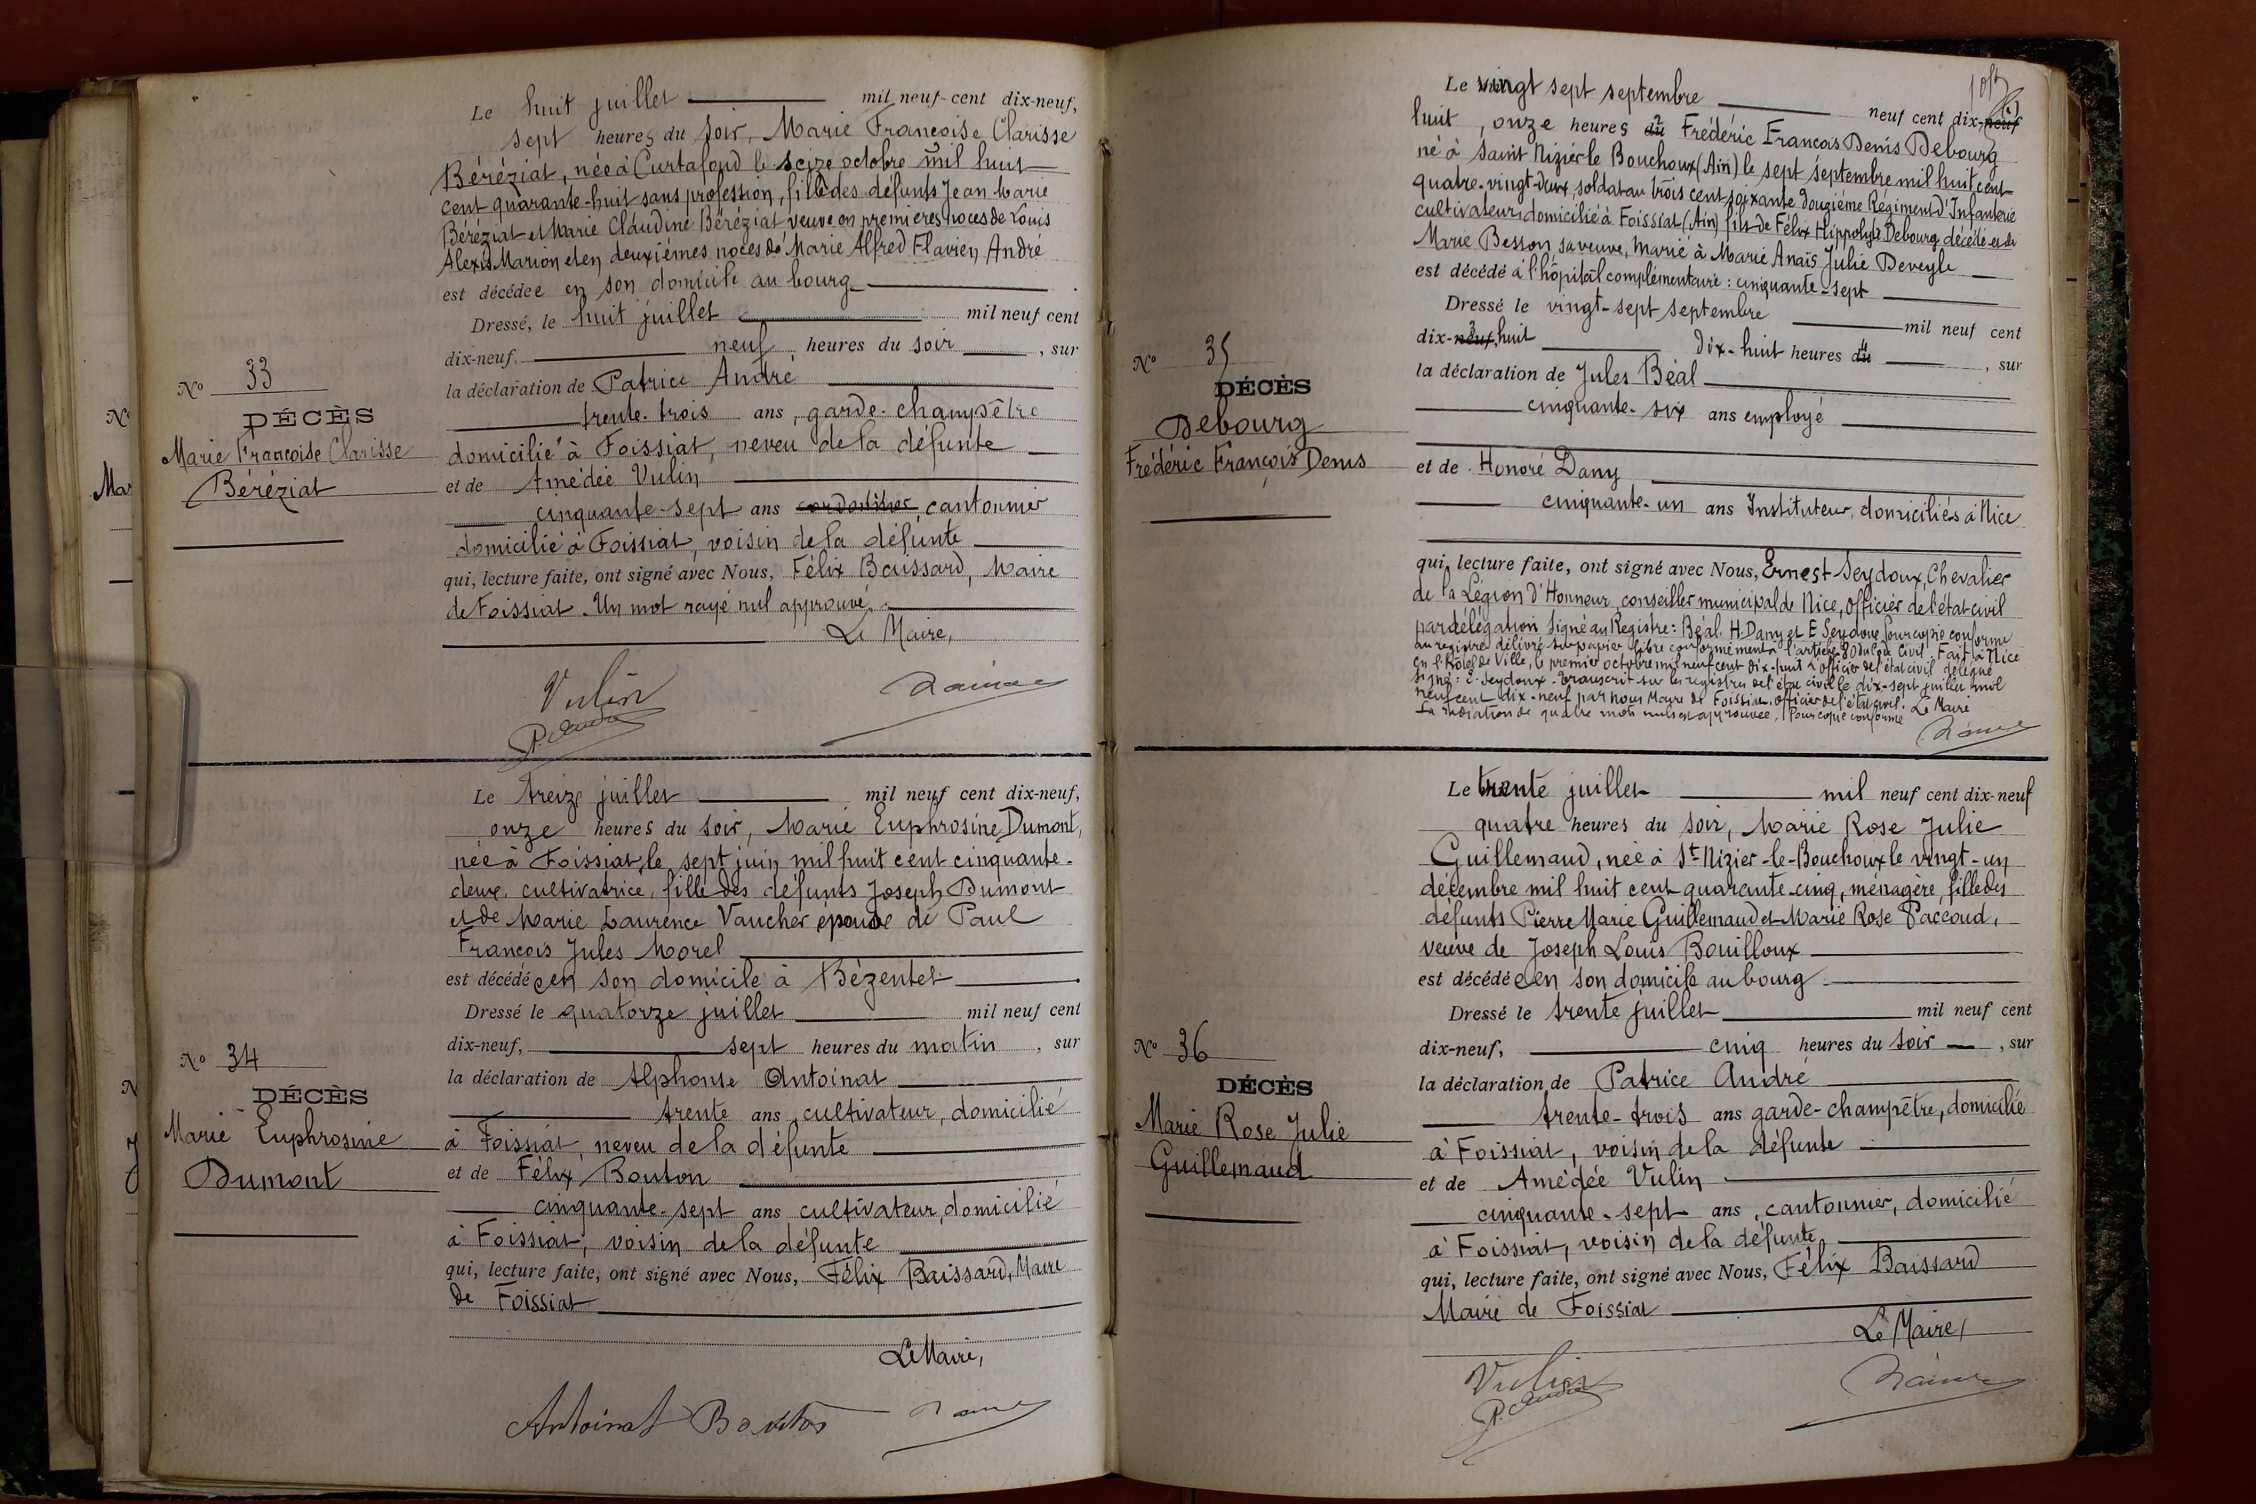 Le huit juillet mil neuf-cent dix-neuf,
sept heures du soir, Marie Françoise Clarisse
Béréziat, née à Curtafond le seize octobre mil huit
cent quarante-huit sans profession, fille des défunts Jean Marie
Béréziat et Marie Claudine Béréziat veuve en premières noces de Louis
Alexis Marion et en deuxièmes noces de Marie Alfred Flavien André
est décédée en son domicile au bourg
Dressé, le huit juillet mil neuf cent
dix-neuf, neuf heures du soir, sur
la déclaration de Patrice André
trente-trois ans, garde-champêtre
domicilié à Foissiat, neveu de la défunte
et de Amédée Vulin
cinquante-sept ans cantonnier
domicilié à Foissiat, voisin de la défunte
qui, lecture faite, ont signé avec Nous, Félix Baissard, Maire
de Foissiat. Un mot rayé nul approuvé.
Le Maire,
Vulin
P. André
No 33
DÉCÈS
Marie Françoise Clarisse
Béréziat
Le treize juillet mil neuf cent dix-neuf,
onze heures du soir, Marie Euphrosine Dumont,
née à Foissiat le sept juin mil huit cent cinquante-
deux, cultivatrice, fille des défunts Joseph Dumont
et de Marie Laurence Vaucher épouse de Paul
François Jules Morel
est décédée en son domicile à Bézentet
Dressé le quatorze juillet mil neuf cent
dix-neuf, sept heures du matin, sur
la déclaration de Alphonse Antoinat
trente ans, cultivateur, domicilié
à Foissiat, neveu de la défunte
et de Félix Bouton
cinquante-sept ans cultivateur, domicilié
à Foissiat, voisin de la défunte
qui, lecture faite, ont signé avec Nous, Félix Baissard, Maire
de Foissiat
Le Maire,
Antoinat Bouton
No 34
DÉCÈS
Marie Euphrosine
Dumont
Le vingt sept septembre neuf cent dix-neuf
huit, onze heures du Frédéric François Denis Debourg
né à Saint Nizier le Bouchoux (Ain) le sept septembre mil huit cent
quatre-vingt-deux, soldat au trois cent soixante douzième Régiment d'Infanterie
cultivateur, domicilié à Foissiat (Ain) fils de Félix Hippolyte Debourg décédé et de
Marie Besson, sa veuve, marié à Marie Anaïs Julie Deveyle
est décédé à l'hôpital complémentaire : cinquante-sept
Dressé le vingt-sept septembre mil neuf cent
dix-neuf, huit dix-huit heures du, sur
la déclaration de Jules Béal
cinquante-six ans employé
et de Honoré Dany
cinquante-un ans Instituteur, domiciliés à Nice
qui, lecture faite, ont signé avec Nous, Ernest Seydoux, Chevalier
de la Légion d'Honneur, conseiller municipal de Nice, officier de l'état civil
par délégation Signé au Registre : Béal. H. Dany et E Seydoux Pour copie conforme
au registre délivré sur papier libre conformément à l'article 80 du code Civil. Fait à Nice
en l'Hôtel de Ville, le premier octobre mil neuf cent dix-huit l'officier de l'état civil délégué
Signé : E. Seydoux - Transcrit sur les registres de l'état civil le dix-sept juillet mil
neuf cent dix-neuf par nous Maire de Foissiat, officier de l'état civil. Le Maire
La radiation de quatre mots nuls est approuvée. Pour copie conforme
No 35
DÉCÈS
Debourg
Frédéric François Denis
Le trente juillet mil neuf cent dix-neuf
quatre heures du soir, Marie Rose Julie
Guillemaud, née à St Nizier-le-Bouchoux le vingt-un
décembre mil huit cent quarante-cinq, ménagère, fille des
défunts Pierre Marie Guillemaud et Marie Rose Paccoud,
veuve de Joseph Louis Bouilloux
est décédée en son domicile au bourg
Dressé le trente juillet mil neuf cent
dix-neuf, cinq heures du soir, sur
la déclaration de Patrice André
trente-trois ans garde-champêtre, domicilié
à Foissiat, voisin de la défunte
et de Amédée Vulin
cinquante-sept ans, cantonnier, domicilié
à Foissiat, voisin de la défunte
qui, lecture faite, ont signé avec Nous, Félix Baissard
Maire de Foissiat
Le Maire,
Vulin
P. André
No 36
DÉCÈS
Marie Rose Julie
Guillemaud